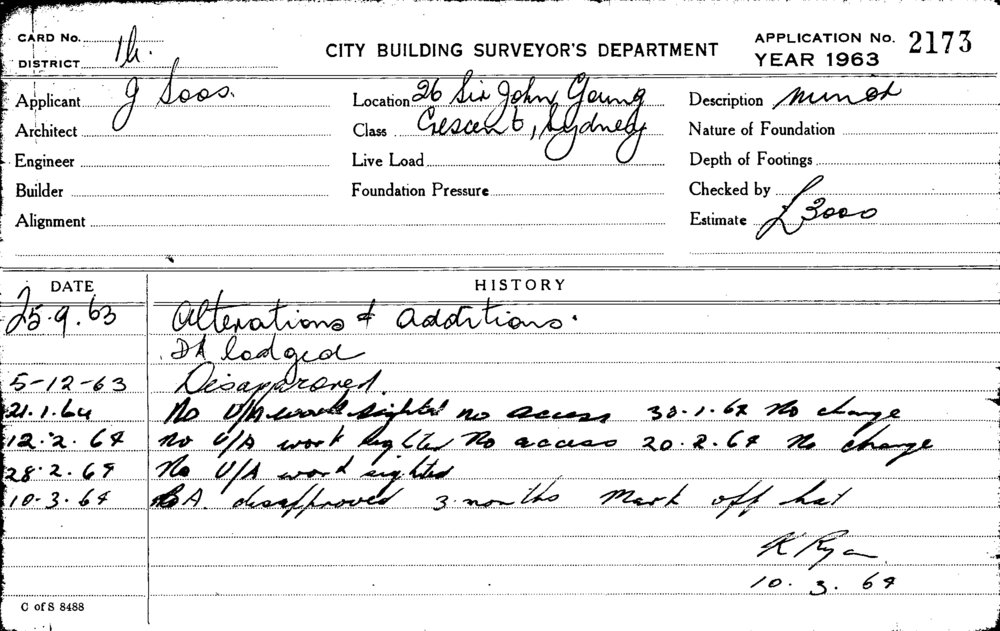 CARD No.
DISTRICT 1h.
CITY BUILDING SURVEYOR'S DEPARTMENT
APPLICATION No. 2173
YEAR 1963
Applicant J Soos.
Location 26 Sir John Young
Description Minor
Architect
Class Crescent, Sydney
Nature of Foundation
Engineer
Live Load
Depth of Footings
Builder
Foundation Pressure
Checked by
Alignment
Estimate £3000
DATE
HISTORY
25.9.63 Alterations & additions.
DA lodged
5-12-63 Disapproved.
21.1.64 No U/A work sighted no access 30.1.64 No change
12.2.64 no U/A work sighted No access 20.2.64 No change
28.2.64 No U/A work sighted
10.3.64 BA. disapproved 3 months Mark off hat
K Ryan
10.3.64
C of S 8488